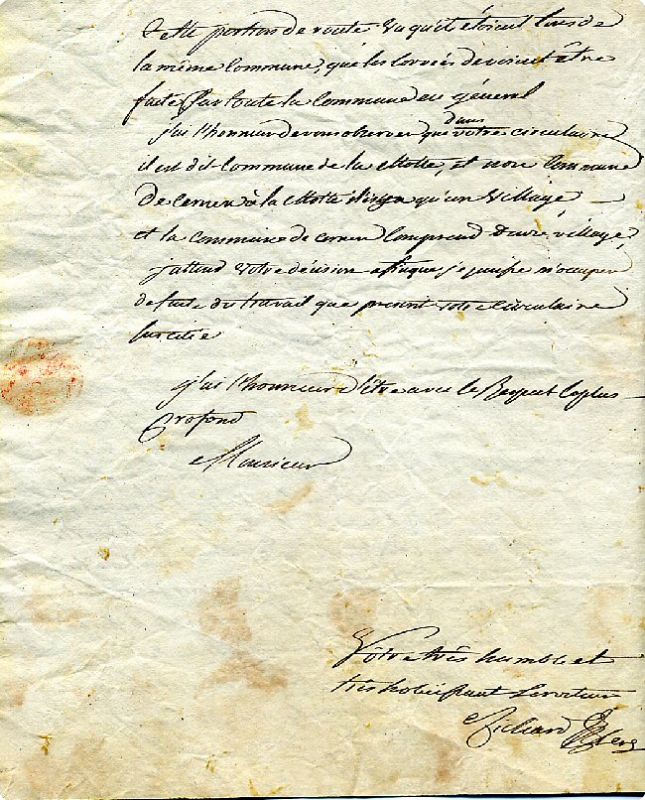 Cette portion de route vu qu'ils étoient tous de
la même Commune, que les Corvées devoient être
faite par toute la Commune en général
j'ai l'honneur de vous observer que dans votre circulaire
il est dit Commune de la Motte, et non Commune
De cernen à la Motte n'est qu'un Village
et la commune de cernen Comprend deux village,
j'attend votre décision affinque je puisse m'occuper
de suite du travail que prescrit votre Circulaire
sus citée
j'ai l'honneur d'être avec le Respect le plus
Profond
Monsieur
Votre très humble et
très hobéissant Serviteur
Richard